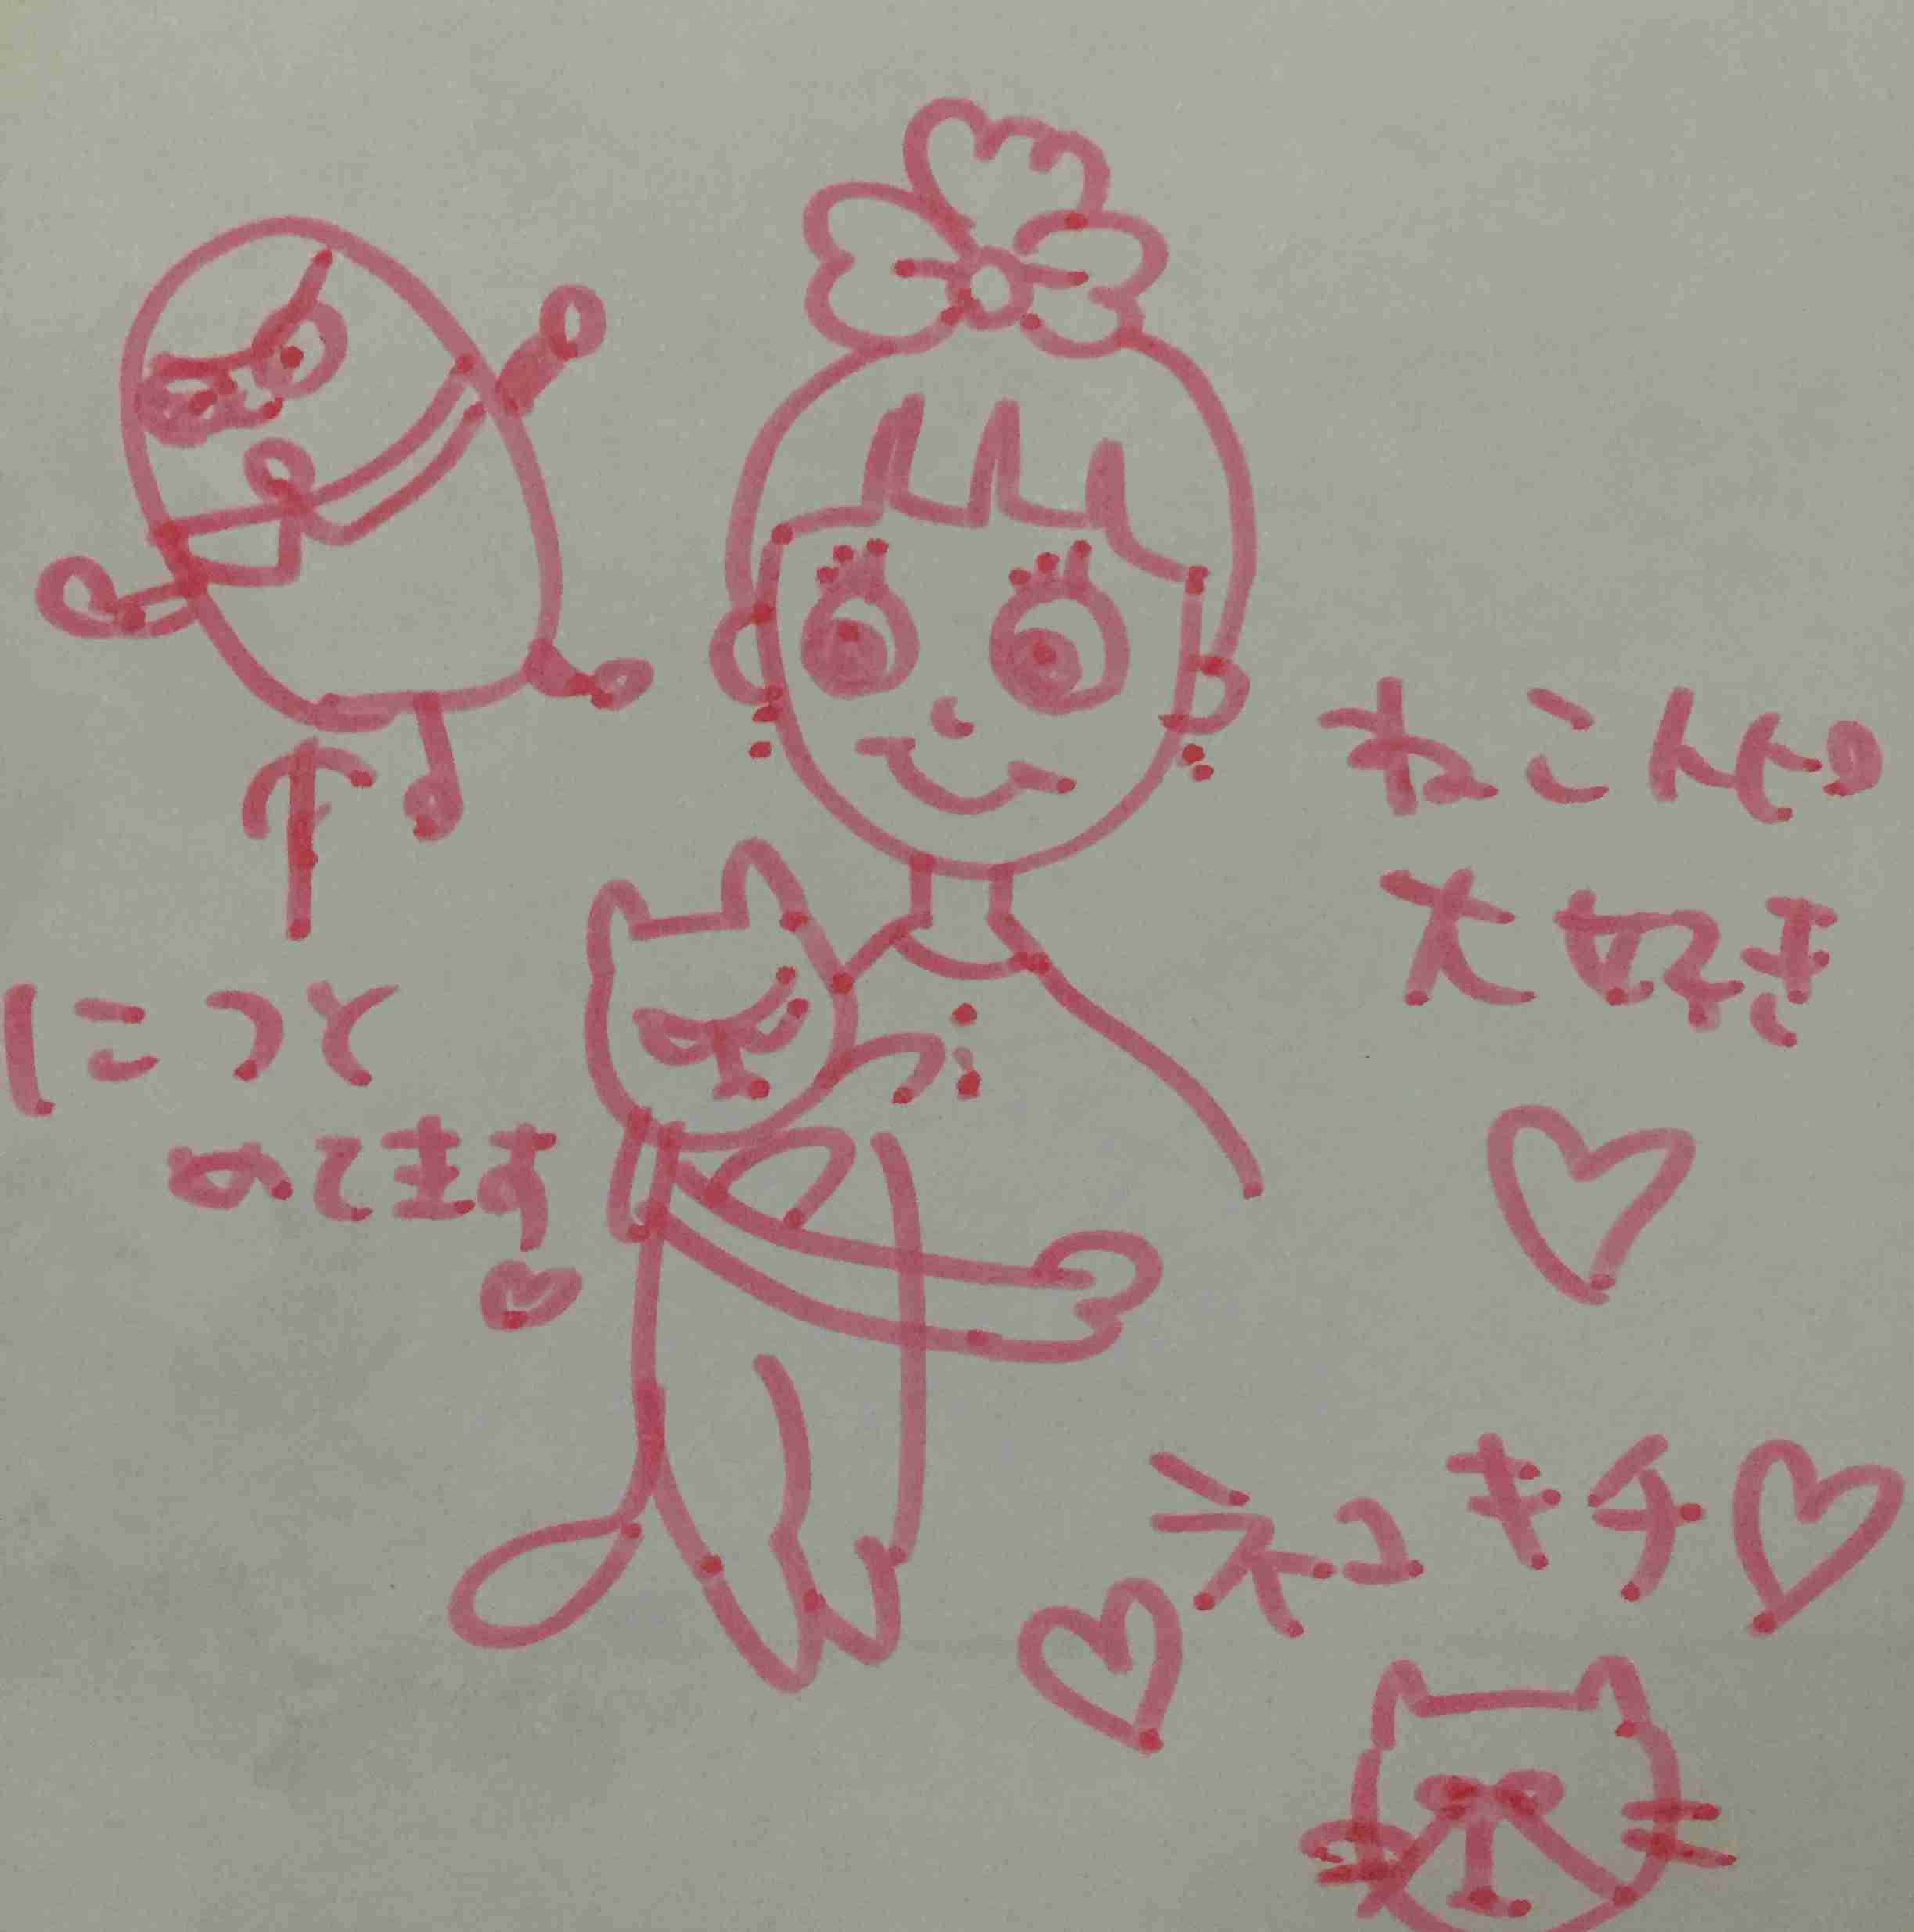 ねこHM
大好き
につと
めてます
ネコキチ